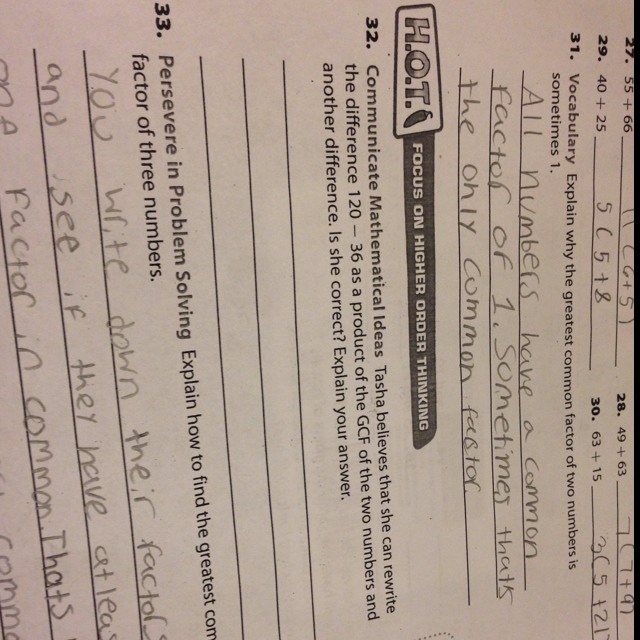 27. 55 + 66 11(6+5)
28. 49 + 63 7(7+9)
29. 40 + 25 5(5+8
30. 63 + 15 3(5+21)
31. Vocabulary Explain why the greatest common factor of two numbers is
sometimes 1.
All numbers have a common
factor of 1. Sometimes thats
the only common factor
H.O.T. FOCUS ON HIGHER ORDER THINKING
32. Communicate Mathematical Ideas Tasha believes that she can rewrite
the difference 120 − 36 as a product of the GCF of the two numbers and
another difference. Is she correct? Explain your answer.
33. Persevere in Problem Solving Explain how to find the greatest com
factor of three numbers.
You write down their factors
and see if they have atleas
one factor in common Thats
comm